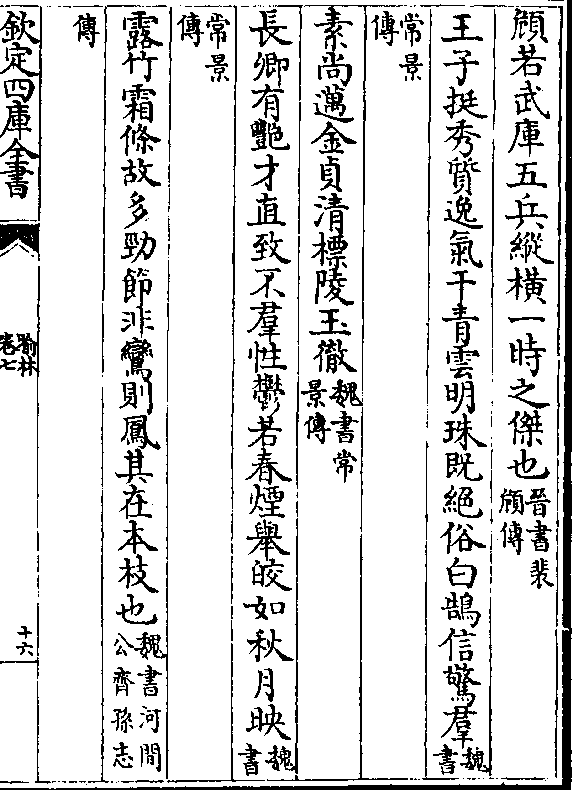 頠若武庫五兵縱橫一時之傑也晉書裴頠傳
王子挺秀質逸氣干青雲明珠既絕俗白鵠信驚羣魏書
常景傳
素尚邁金貞清標陵玉徹魏書常景傳
長卿有艷才直致不羣性鬱若春煙舉皎如秋月映魏書
常景傳
露竹霜條故多勁節非鸞則鳳其在本枝也魏書河間公齊孫志
傳
欽定四庫全書
喻林
卷七
十六